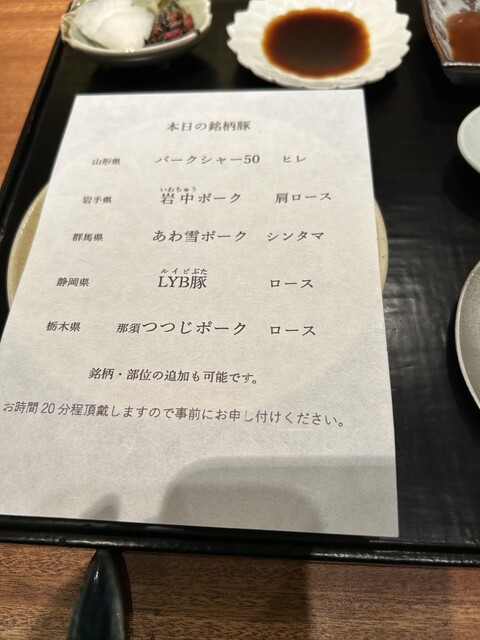 本日の銘柄豚
山形県 バークシャー50 ヒレ
いわちゅう
岩手県 岩中ポーク 肩ロース
群馬県 あわ雪ポーク シンタマ
ルイビぶた
静岡県 LYB豚 ロース
栃木県 那須つつじポーク ロース
銘柄・部位の追加も可能です。
お時間20分程頂戴しますので事前にお申し付けください。